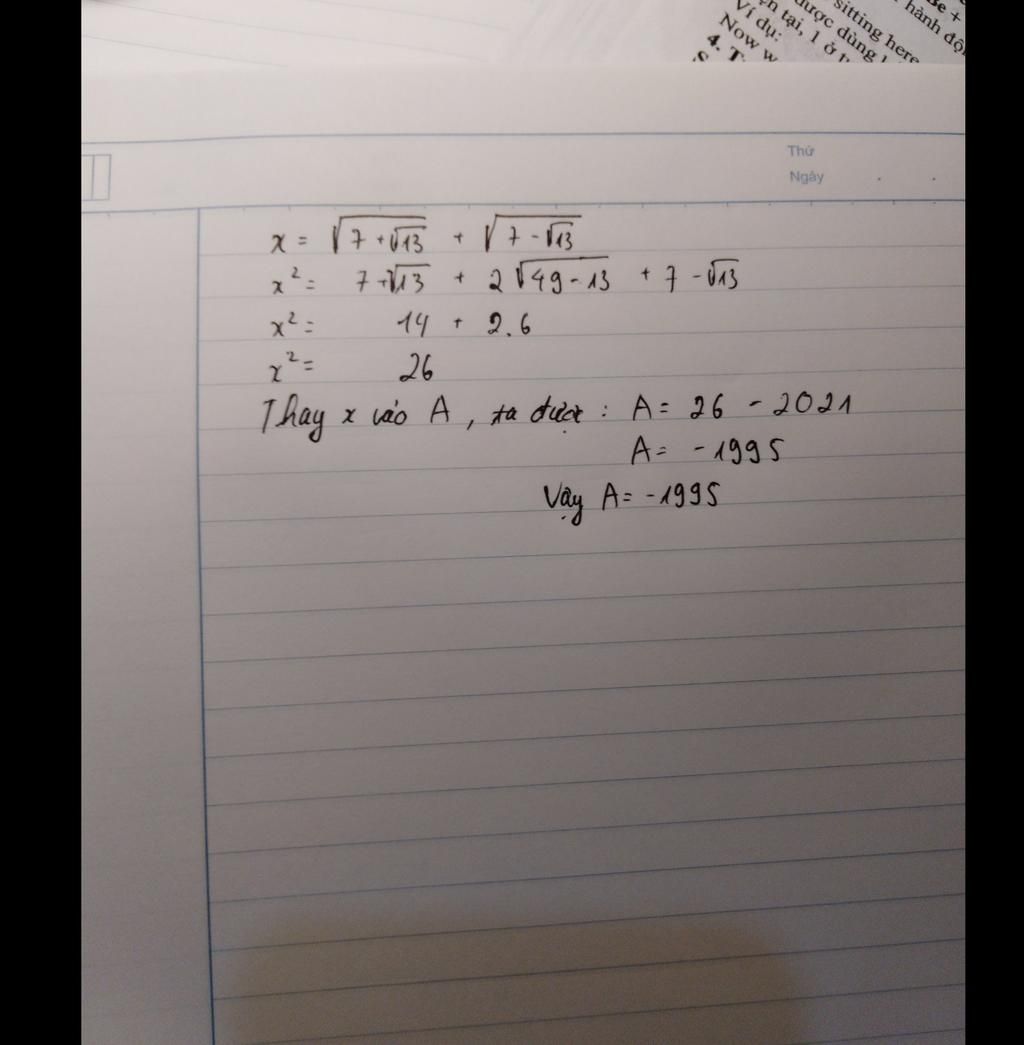 Be +
hành độ
sitting here
được dùng
n tại, 1 ở
Ví dụ:
Now w
4. T
Thứ
Ngày
x = √(7 + √13) + √(7 - √13)
x² = 7 + √13 + 2√(49 - 13) + 7 - √13
x² = 14 + 2.6
x² = 26
Thay x vào A, ta được : A = 26 - 2021
A = -1995
Vậy A = -1995